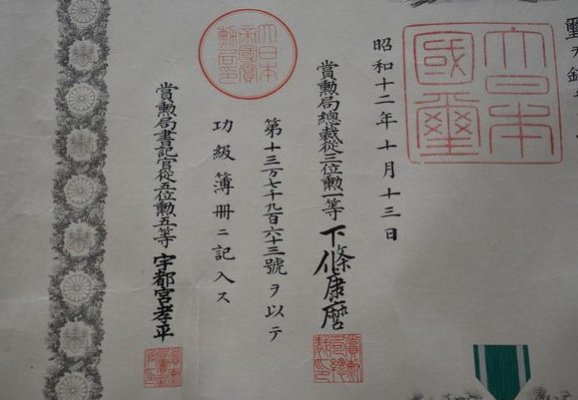 璽ヲ鈐
大日本
國璽
昭和十二年十月十三日
賞勳局總裁從三位勳一等 下條康麿
第十三万七千九百六十三號ヲ以テ
功級簿冊ニ記入ス
大日本
帝國賞
勳局印
賞勳局書記官從五位勳五等 宇都宮孝平